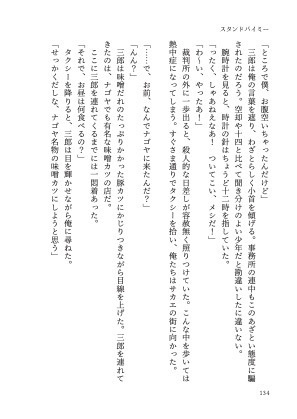 スタンドバイミー
「ところで僕、お腹空いちゃったんだけど」
三郎は俺の言葉を遮り、わざとらしく小首を傾げる。事務所の連中もこのあざとい態度に騙
されたのだろう。空却や十四と比べて聞き分けのよい少年だと勘違いしたに違いない。
腕時計を見ると、時計の針はちょうど十二時を指していた。
「ったく、しゃあねえなあ！　ついてこい、メシだ！」
「わ〜い、やったあ！」
裁判所の外に一歩出ると、殺人的な日差しが容赦無く照りつけていた。こんな中を歩いては
熱中症になってしまう。すぐさま通りでタクシーを拾い、俺たちはサカエの街に向かった。
「……で、お前、なんでナゴヤに来たんだ？」
「んん？」
三郎は味噌だれのたっぷりかかった豚カツにかじりつきながら目線を上げた。三郎を連れて
きたのは、ナゴヤでも有名な味噌カツの店だ。
ここに三郎を連れてくるまでには一悶着あった。
「それで、お昼は何食べるの？」
タクシーを降りると、三郎は目を輝かせながら俺に尋ねた。
「せっかくだしな、ナゴヤ名物の味噌カツにしようと思う」
134